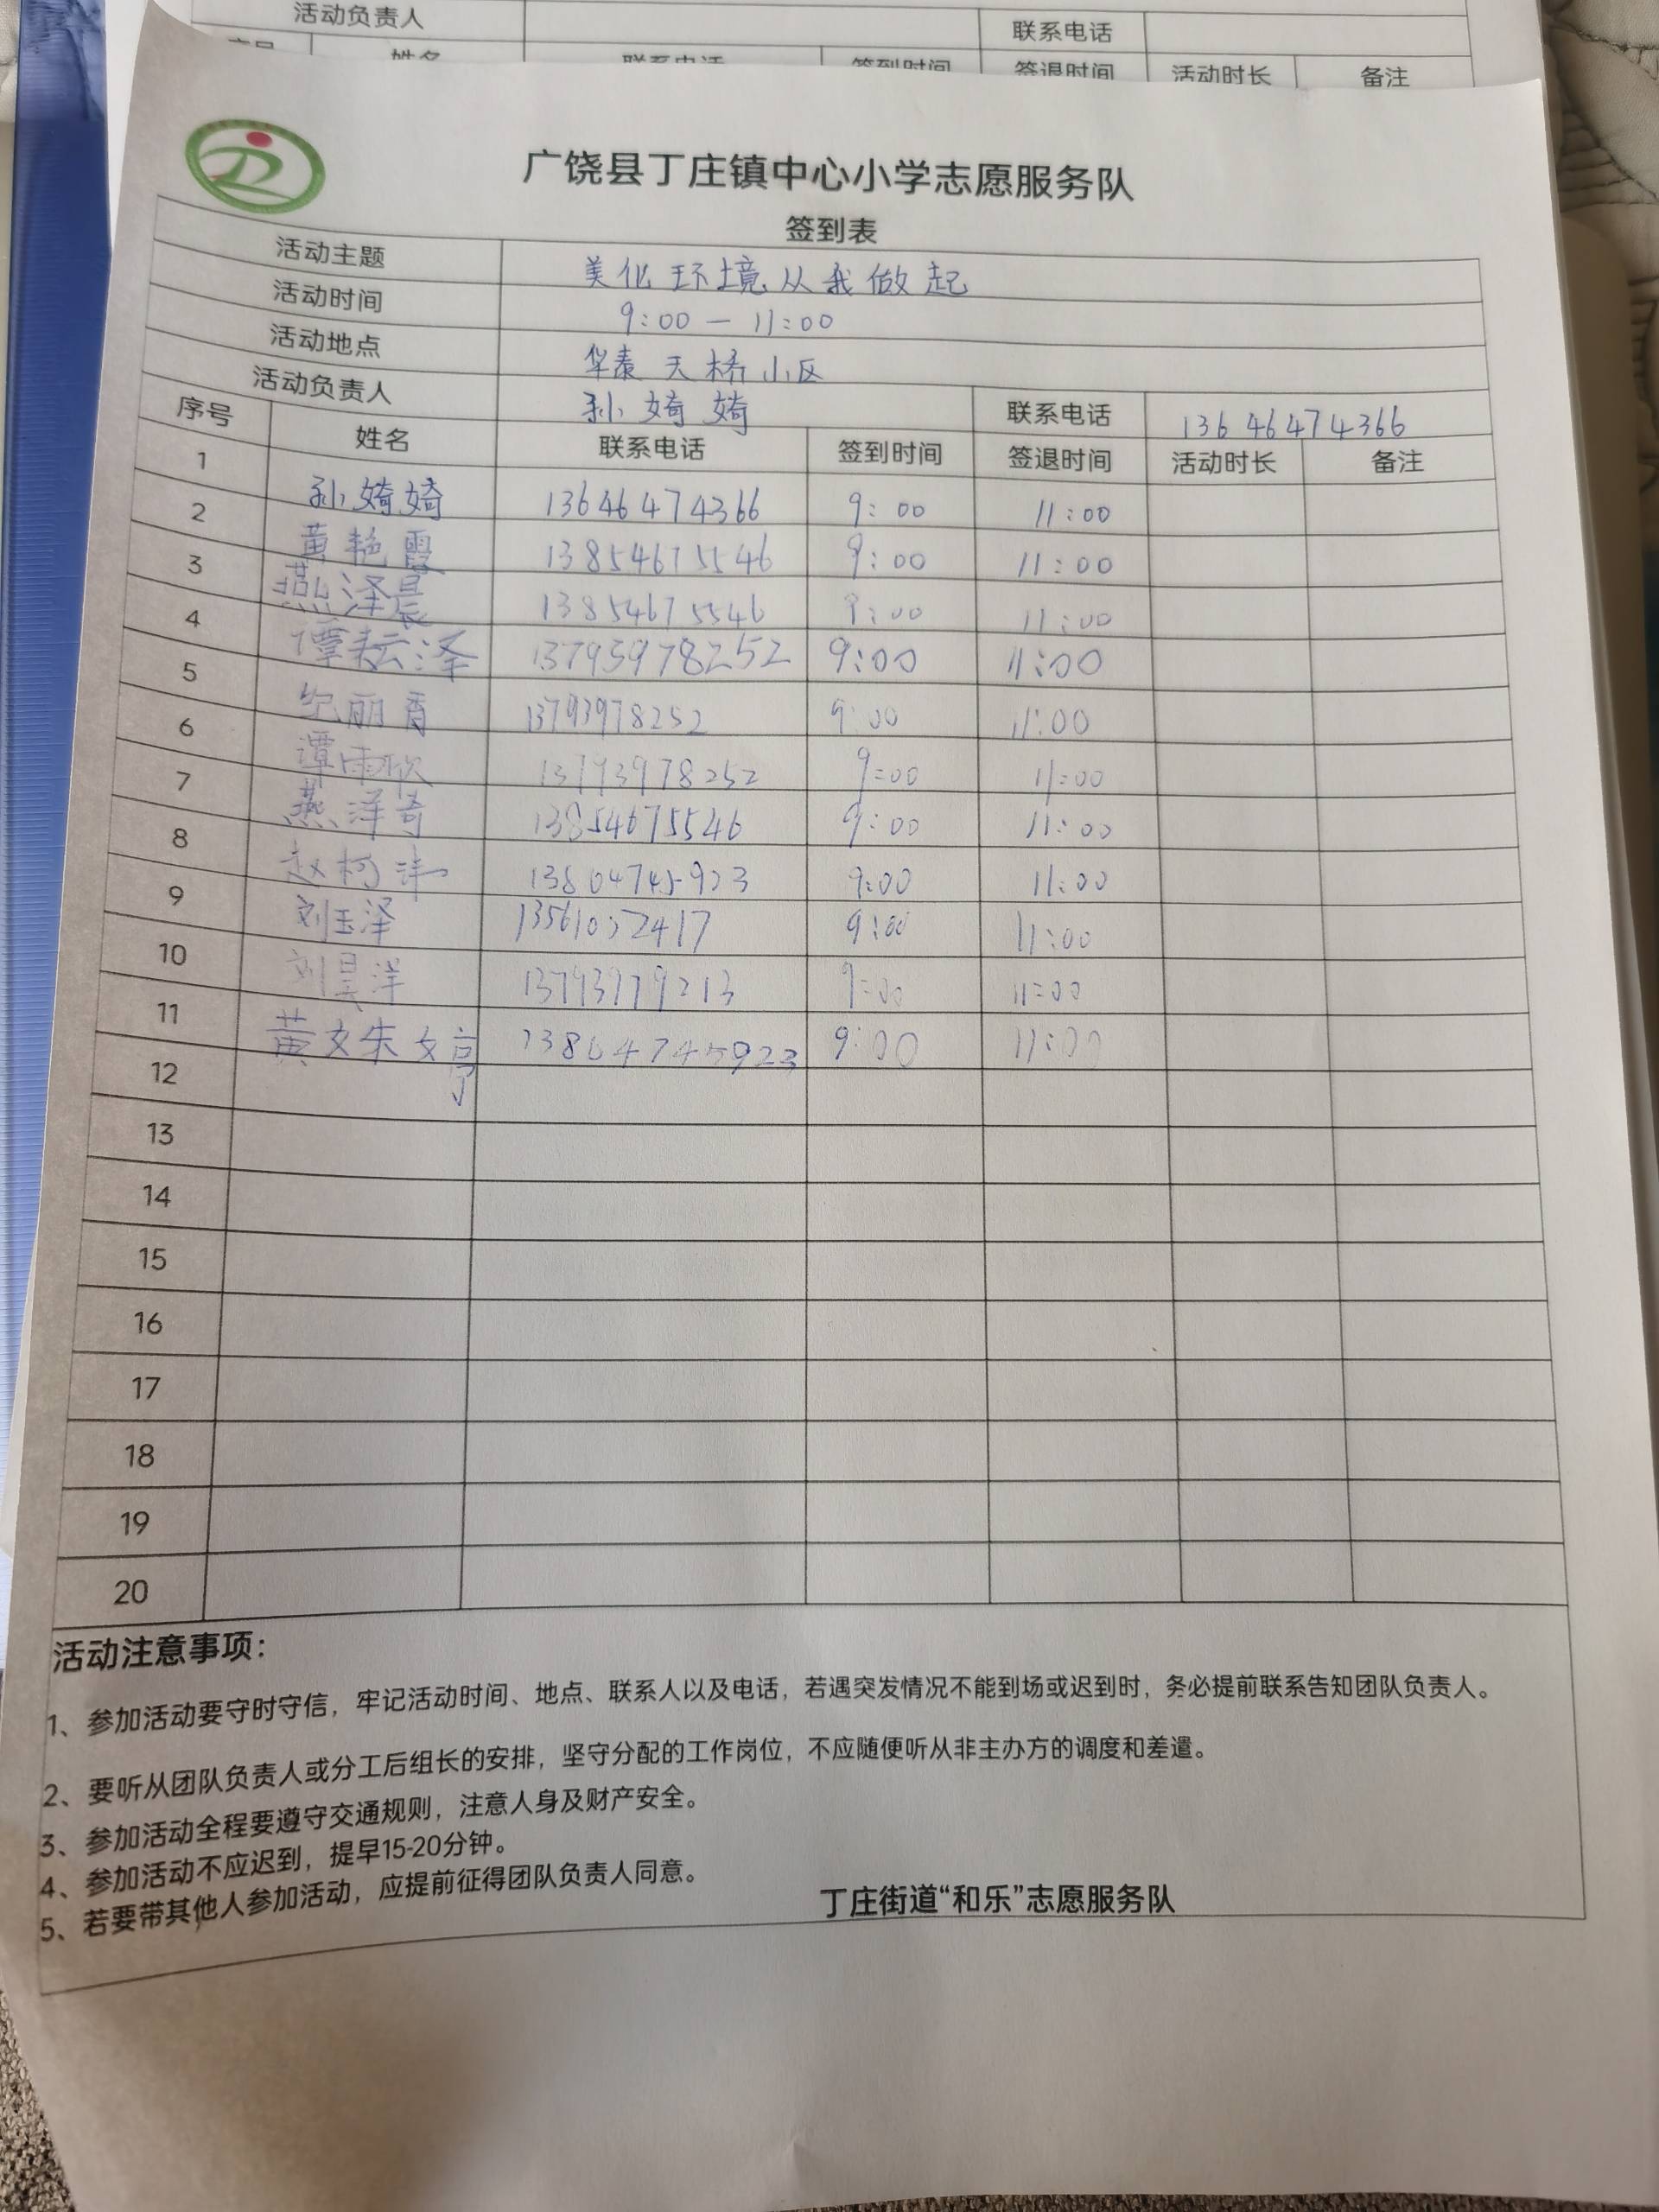 活动负责人 联系电话
姓名 联系电话 签到时间 签退时间 活动时长 备注
广饶县丁庄镇中心小学志愿服务队
签到表
活动主题 美化环境从我做起
活动时间 9:00 — 11:00
活动地点 华泰天桥小区
活动负责人 孙婍婍 联系电话 13646474366
序号 姓名 联系电话 签到时间 签退时间 活动时长 备注
1 孙婍婍 13646474366 9:00 11:00
2 黄艳霞 13854675546 9:00 11:00
3 燕泽晨 13854675546 9:00 11:00
4 谭耘泽 13793978252 9:00 11:00
5 纪丽香 13793978252 9:00 11:00
6 谭雨欣 13793978252 9:00 11:00
7 燕泽奇 13854675546 9:00 11:00
8 赵柯沣 13864745923 9:00 11:00
9 刘玉泽 9:00 11:00
10 刘昊洋 13793979213 9:00 11:00
11 黄姝婷 13864745923 9:00 11:00
12
13
14
15
16
17
18
19
20
活动注意事项：
1、参加活动要守时守信，牢记活动时间、地点、联系人以及电话，若遇突发情况不能到场或迟到时，务必提前联系告知团队负责人。
2、要听从团队负责人或分工后组长的安排，坚守分配的工作岗位，不应随便听从非主办方的调度和差遣。
3、参加活动全程要遵守交通规则，注意人身及财产安全。
4、参加活动不应迟到，提早15-20分钟。
5、若要带其他人参加活动，应提前征得团队负责人同意。
丁庄街道“和乐”志愿服务队